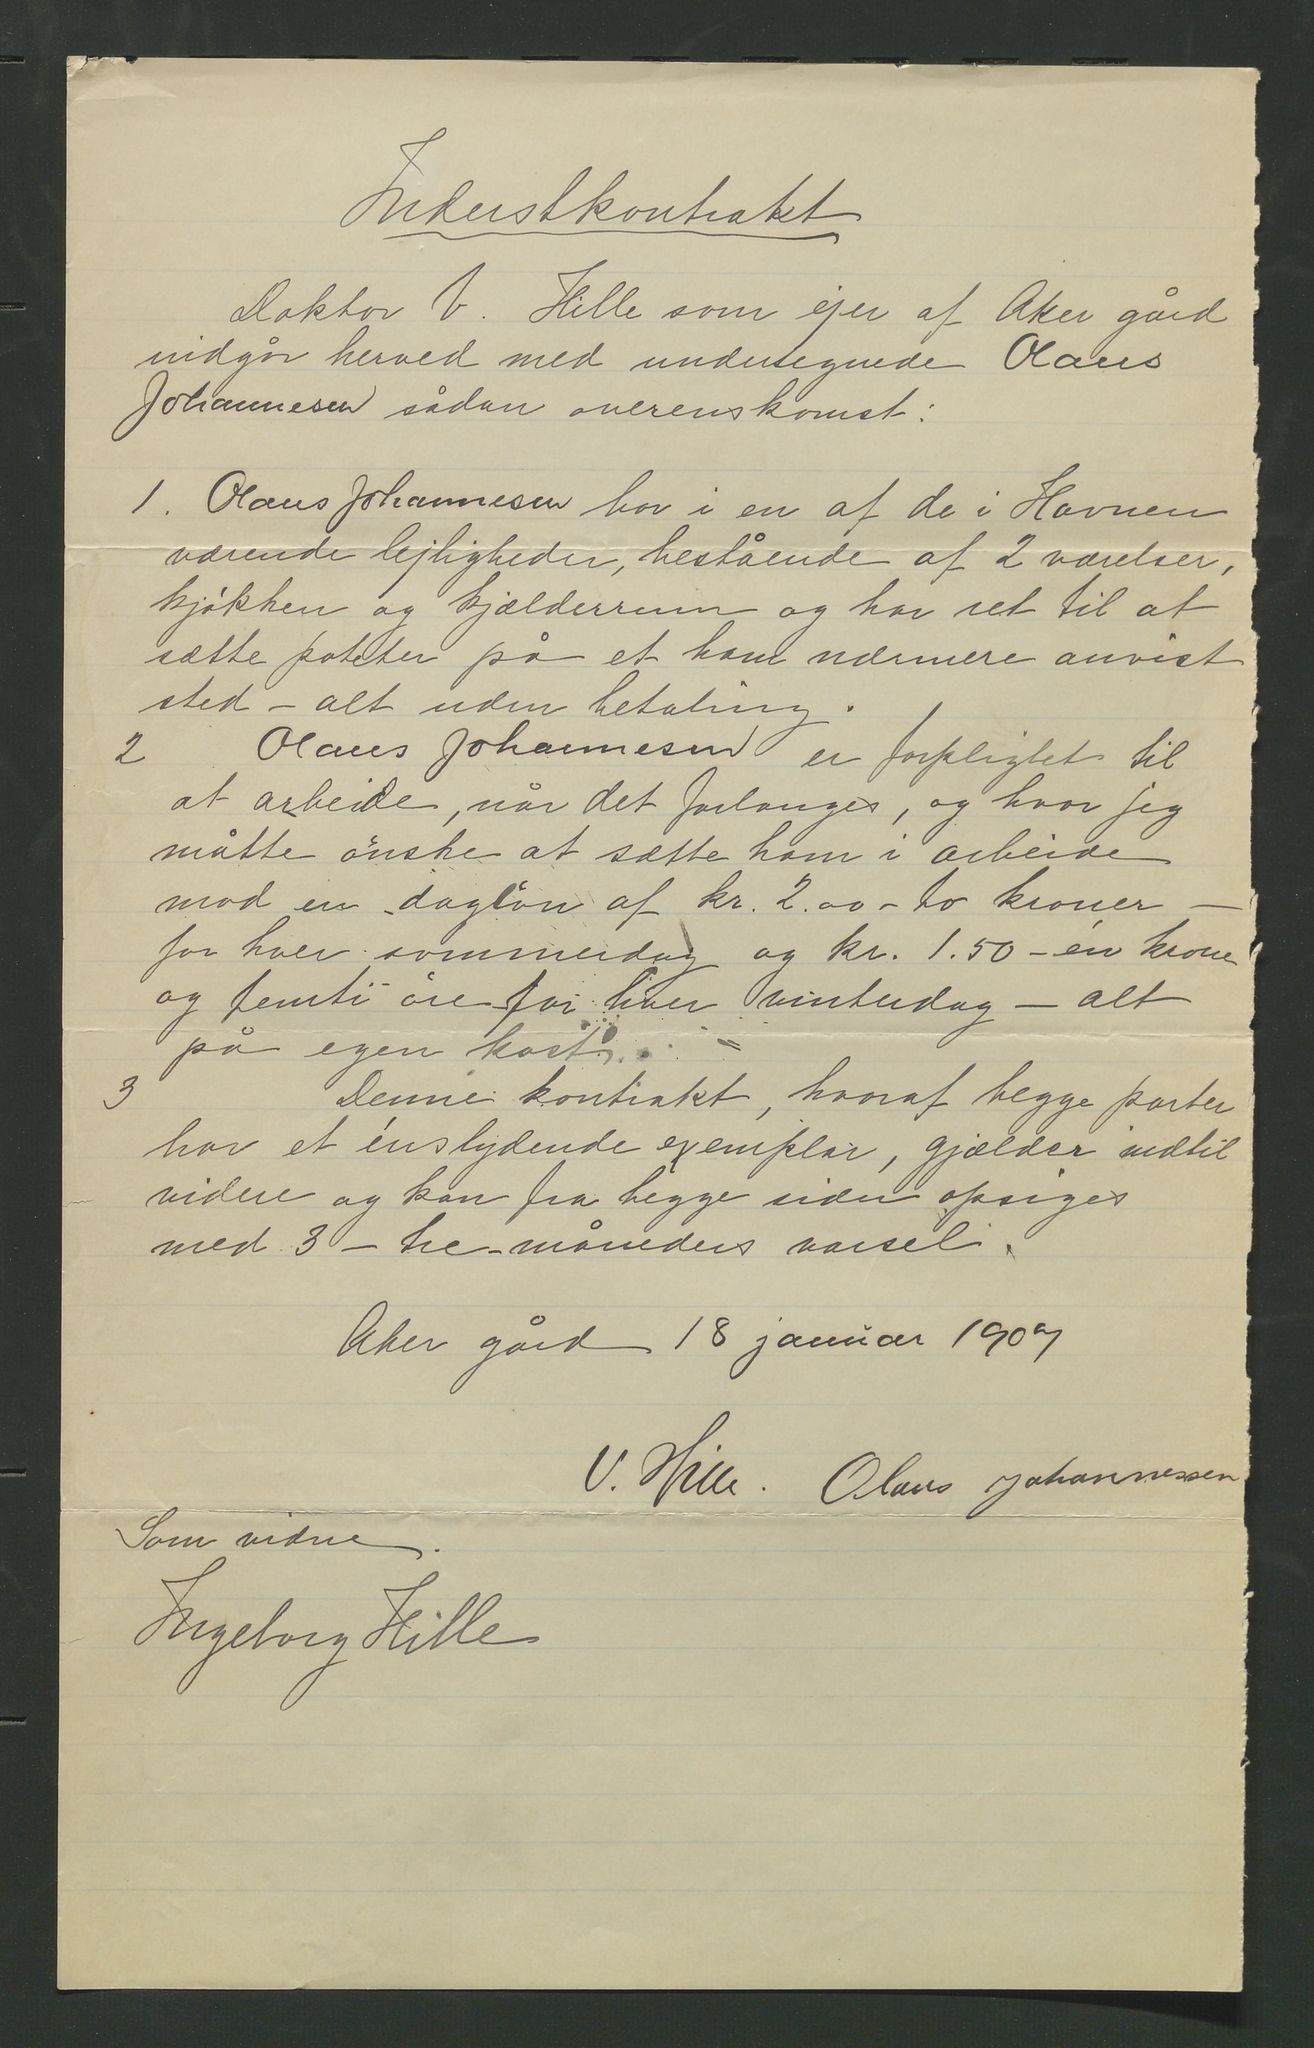 Inderstkontrakt
Doktor V. Hille som ejer af Aker gård
indgår herved med undertegnede Olaus
Johannesen sådan overenskomst:
1. Olaus Johannesen bor i en af de i Havnen
værende lejligheder, bestående af 2 værelser,
kjøkken og kjælderrum og har ret til at
sætte poteter på et ham nærmere anvist
sted - alt uden betaling.
2 Olaus Johannesen er forpligtet til
at arbeide, når det forlanges, og hvor jeg
måtte ønske at sætte ham i arbeide
mod en daglön af kr. 2.00 - to kroner -
for hver sommerdag og kr. 1.50 - én krone
og femti øre for hver vinterdag - alt
på egen kost.
3 Denne kontrakt, hvoraf begge parter
har et énslydende exemplar, gjælder indtil
videre og kan fra begge sider opsiges
med 3 - tre - måneders varsel.
Aker gård 18 januar 1907
V. Hille. Olaus Johannessen
Som vidne.
Ingeborg Hille